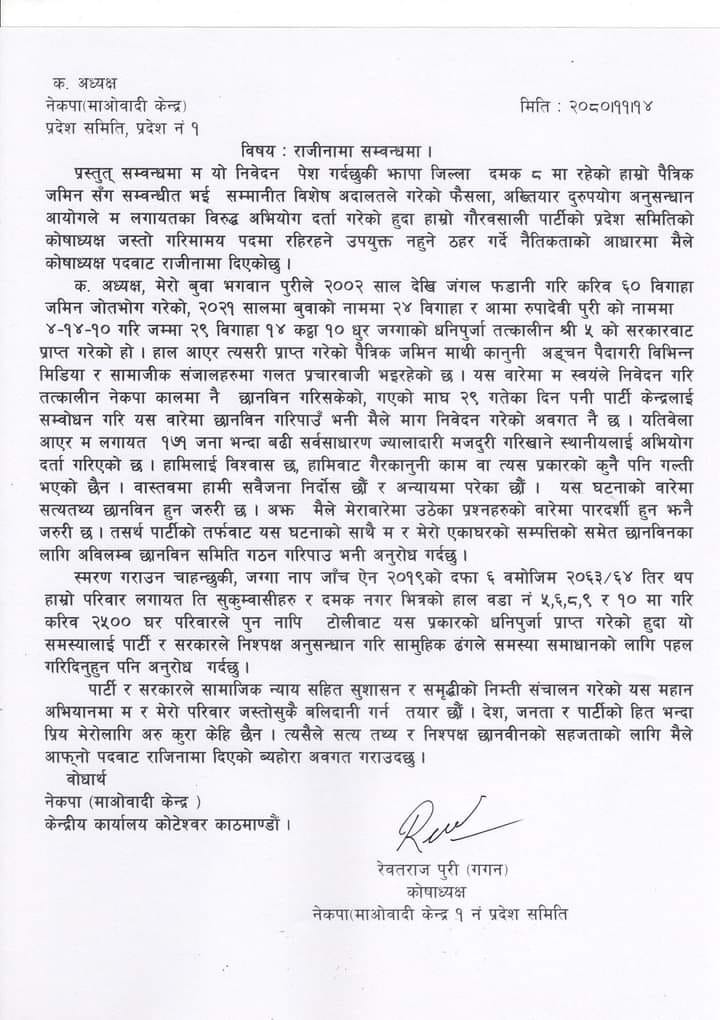 क. अध्यक्ष
नेकपा(माओवादी केन्द्र)
मिति : २०८०।११।१४
प्रदेश समिति, प्रदेश नं १
विषय : राजीनामा सम्वन्धमा ।
प्रस्तुत् सम्वन्धमा म यो निवेदन पेश गर्दछुकी झापा जिल्ला दमक ८ मा रहेको हाम्रो पैत्रिक
जमिन सँग सम्वन्धीत भई सम्मानीत विशेष अदालतले गरेको फैसला, अख्तियार दुरुपयोग अनुसन्धान
आयोगले म लगायतका विरुद्ध अभियोग दर्ता गरेको हुदा हाम्रो गौरवसाली पार्टीको प्रदेश समितिको
कोषाध्यक्ष जस्तो गरिमामय पदमा रहिरहने उपयुक्त नहुने ठहर गर्दे नैतिकताको आधारमा मैले
कोषाध्यक्ष पदवाट राजीनामा दिएकोछु ।
क. अध्यक्ष, मेरो बुवा भगवान पुरीले २००२ साल देखि जंगल फडानी गरि करिव ६० विगाहा
जमिन जोतभोग गरेको, २०२१ सालमा बुवाको नाममा २४ विगाहा र आमा रुपादेवी पुरी को नाममा
४-१४-१० गरि जम्मा २९ विगाहा १४ कट्ठा १० धुर जग्गाको धनिपुर्जा तत्कालीन श्री ५ को सरकारवाट
प्राप्त गरेको हो । हाल आएर त्यसरी प्राप्त गरेको पैत्रिक जमिन माथी कानुनी अड्चन पैदागरी विभिन्न
मिडिया र सामाजीक संजालहरुमा गलत प्रचारवाजी भइरहेको छ । यस वारेमा म स्वयंले निवेदन गरि
तत्कालीन नेकपा कालमा नै छानविन गरिसकेको, गएको माघ २९ गतेका दिन पनी पार्टी केन्द्रलाई
सम्वोधन गरि यस वारेमा छानविन गरिपाउँ भनी मैले माग निवेदन गरेको अवगत नै छ । यतिवेला
आएर म लगायत १७१ जना भन्दा बढी सर्वसाधारण ज्यालादारी मजदुरी गरिखाने स्थानीयलाई अभियोग
दर्ता गरिएको छ । हामिलाई विश्वास छ, हामिवाट गैरकानुनी काम वा त्यस प्रकारको कुनै पनि गल्ती
भएको छैन । वास्तवमा हामी सवैजना निर्दोस छौं र अन्यायमा परेका छौं । यस घटनाको वारेमा
सत्यतथ्य छानविन हुन जरुरी छ । अझ मैले मेरावारेमा उठेका प्रश्नहरुको वारेमा पारदर्शी हुन झनै
जरुरी छ । तसर्थ पार्टीको तर्फवाट यस घटनाको साथै म र मेरो एकाघरको सम्पत्तिको समेत छानविनका
लागि अविलम्ब छानविन समिति गठन गरिपाउ भनी अनुरोध गर्दछु ।
स्मरण गराउन चाहन्छुकी, जग्गा नाप जाँच ऐन २०१९को दफा ६ वमोजिम २०६३/६४ तिर थप
हाम्रो परिवार लगायत ति सुकुम्वासीहरु र दमक नगर भित्रको हाल वडा नं ५,६,८,९ र १० मा गरि
करिव २५०० घर परिवारले पुन नापि टोलीवाट यस प्रकारको धनिपुर्जा प्राप्त गरेको हुदा यो
समस्यालाई पार्टी र सरकारले निश्पक्ष अनुसन्धान गरि सामुहिक ढंगले समस्या समाधानको लागि पहल
गरिदिनुहुन पनि अनुरोध गर्दछु ।
पार्टी र सरकारले सामाजिक न्याय सहित सुशासन र समृद्धीको निम्ती संचालन गरेको यस महान
अभियानमा म र मेरो परिवार जस्तोसुकै बलिदानी गर्न तयार छौं । देश, जनता र पार्टीको हित भन्दा
प्रिय मेरोलागि अरु कुरा केहि छैन । त्यसैले सत्य तथ्य र निश्पक्ष छानवीनको सहजताको लागि मैले
आफ्नो पदवाट राजिनामा दिएको ब्यहोरा अवगत गराउदछु ।
वोधार्थ
नेकपा (माओवादी केन्द्र )
केन्द्रीय कार्यालय कोटेश्वर काठमाण्डौं ।
रेवतराज पुरी (गगन)
कोषाध्यक्ष
नेकपा(माओवादी केन्द्र १ नं प्रदेश समिति